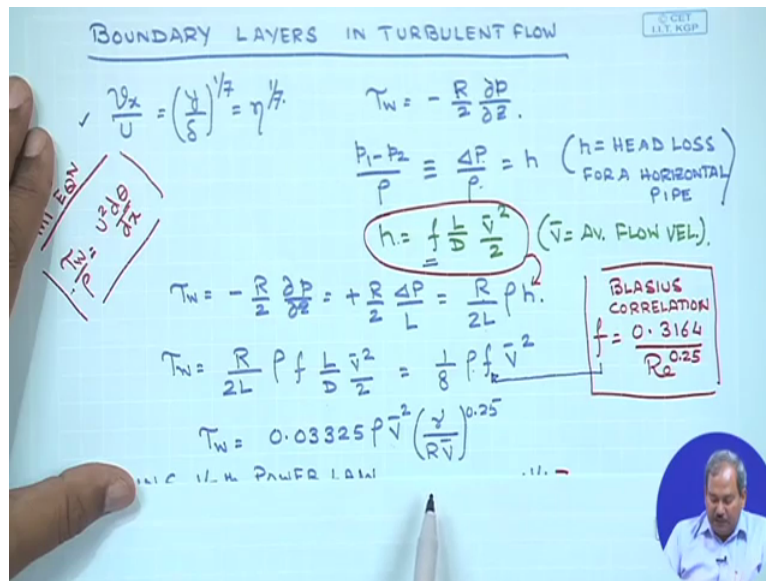 BOUNDARY LAYERS IN TURBULENT FLOW
© CET
I.I.T. KGP
✓ vx/U = (y/δ)^1/7 = η^1/7.
τw = - R/2 ∂P/∂z.
p1-p2/ρ ≡ ΔP/ρ. = h (h = HEAD LOSS
FOR A HORIZONTAL
PIPE)
MI EQN
τw/ρ = U² dθ/dx
h. = f L/D v̄²/2 (v̄ = AV. FLOW VEL.).
τw = - R/2 ∂p/∂z = + R/2 ΔP/L = R/2L ρh.
BLASIUS
CORRELATION
f = 0.3164/Re^0.25
τw = R/2L ρ f L/D v̄²/2 = 1/8 ρ f v̄²
τw = 0.03325 ρ v̄² (γ/Rv̄)^0.25
POWER LAW